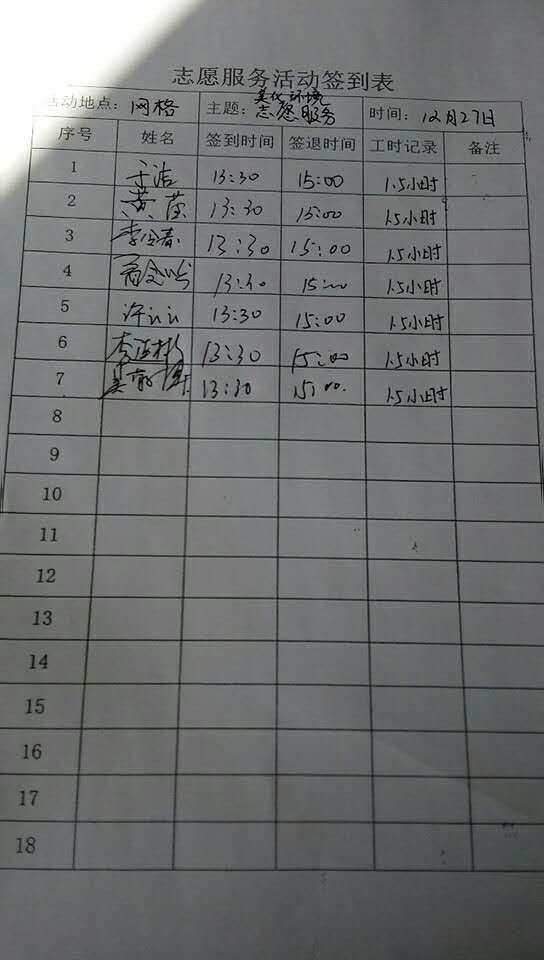 志愿服务活动签到表
活动地点：网格 主题：美化环境志愿服务 时间：12月27日
序号 姓名 签到时间 签退时间 工时记录 备注
1 于洁 13:30 15:00 1.5小时
2 黄莹 13:30 15:00 1.5小时
3 13:30 15:00 1.5小时
4 13:30 15:00 1.5小时
5 许让让 13:30 15:00 1.5小时
6 李正彬 13:30 15:00 1.5小时
7 13:30 15:00 1.5小时
8
9
10
11
12
13
14
15
16
17
18